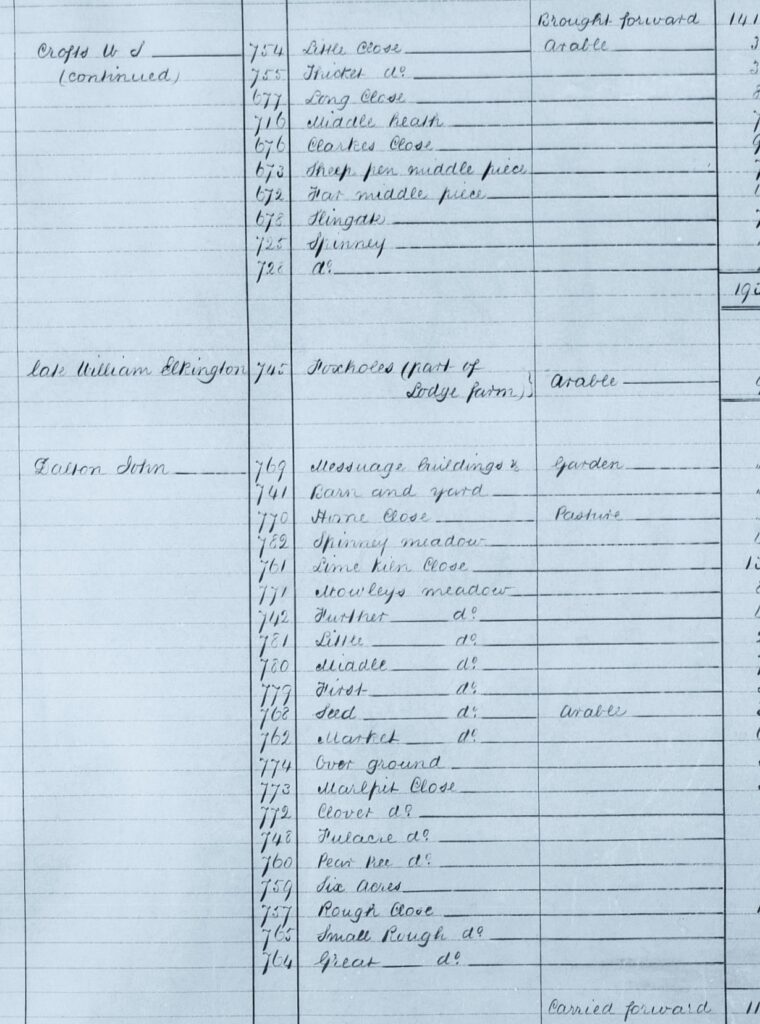 Brought forward 141
Crofts W S 754 Little Close Arable 3
(continued) 755 Thicket do 3
677 Long Close 8
716 Middle heath 7
676 Clarkes Close 9
673 Sheep pen middle piece 7
672 Far middle piece
678 Slingate 7
725 Spinney
728 do
19
late William Elkington 745 Foxholes (part of
Lodge farm) Arable
Dalton John 769 Messuage buildings & Garden
741 Barn and yard
770 Home Close Pasture
782 Spinney meadow
761 Lime kiln Close 13
771 Mowleys meadow
742 Further do
781 Little do
780 Middle do
779 First do
768 Seed do Arable
762 Market do
774 Over ground
773 Marlpit Close
772 Clover do
748 Fulacre do
760 Pear tree do
759 Six Acres
757 Rough Close
765 Small Rough do
764 Great do
Carried forward 11